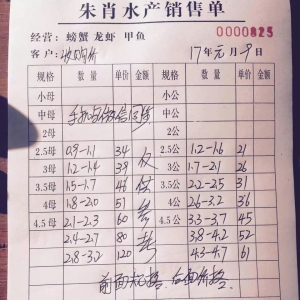 朱肖水产销售单
0000825
经营：螃蟹 龙虾 甲鱼
客户： 17年元月9日
规格 数量 单价 金额 规格 数量 单价 金额
小母 小公
中母 中公
2母 2公
2.5母 0.9-1.1 34 仅 2.5公 1.2-1.6 21
3母 1.2-1.4 38 3公 1.7-2.1 26
3.5母 1.5-1.7 46 3.5公 2.2-2.5 31
4母 1.8-2.0 51 4公 2.6-3.2 36
4.5母 2.1-2.3 60 参 4.5公 3.3-3.7 45
2.4-2.7 80 考 3.8-4.2 52
2.8-3.2 120 4.3-4.7 61
前面规格，后面价格。